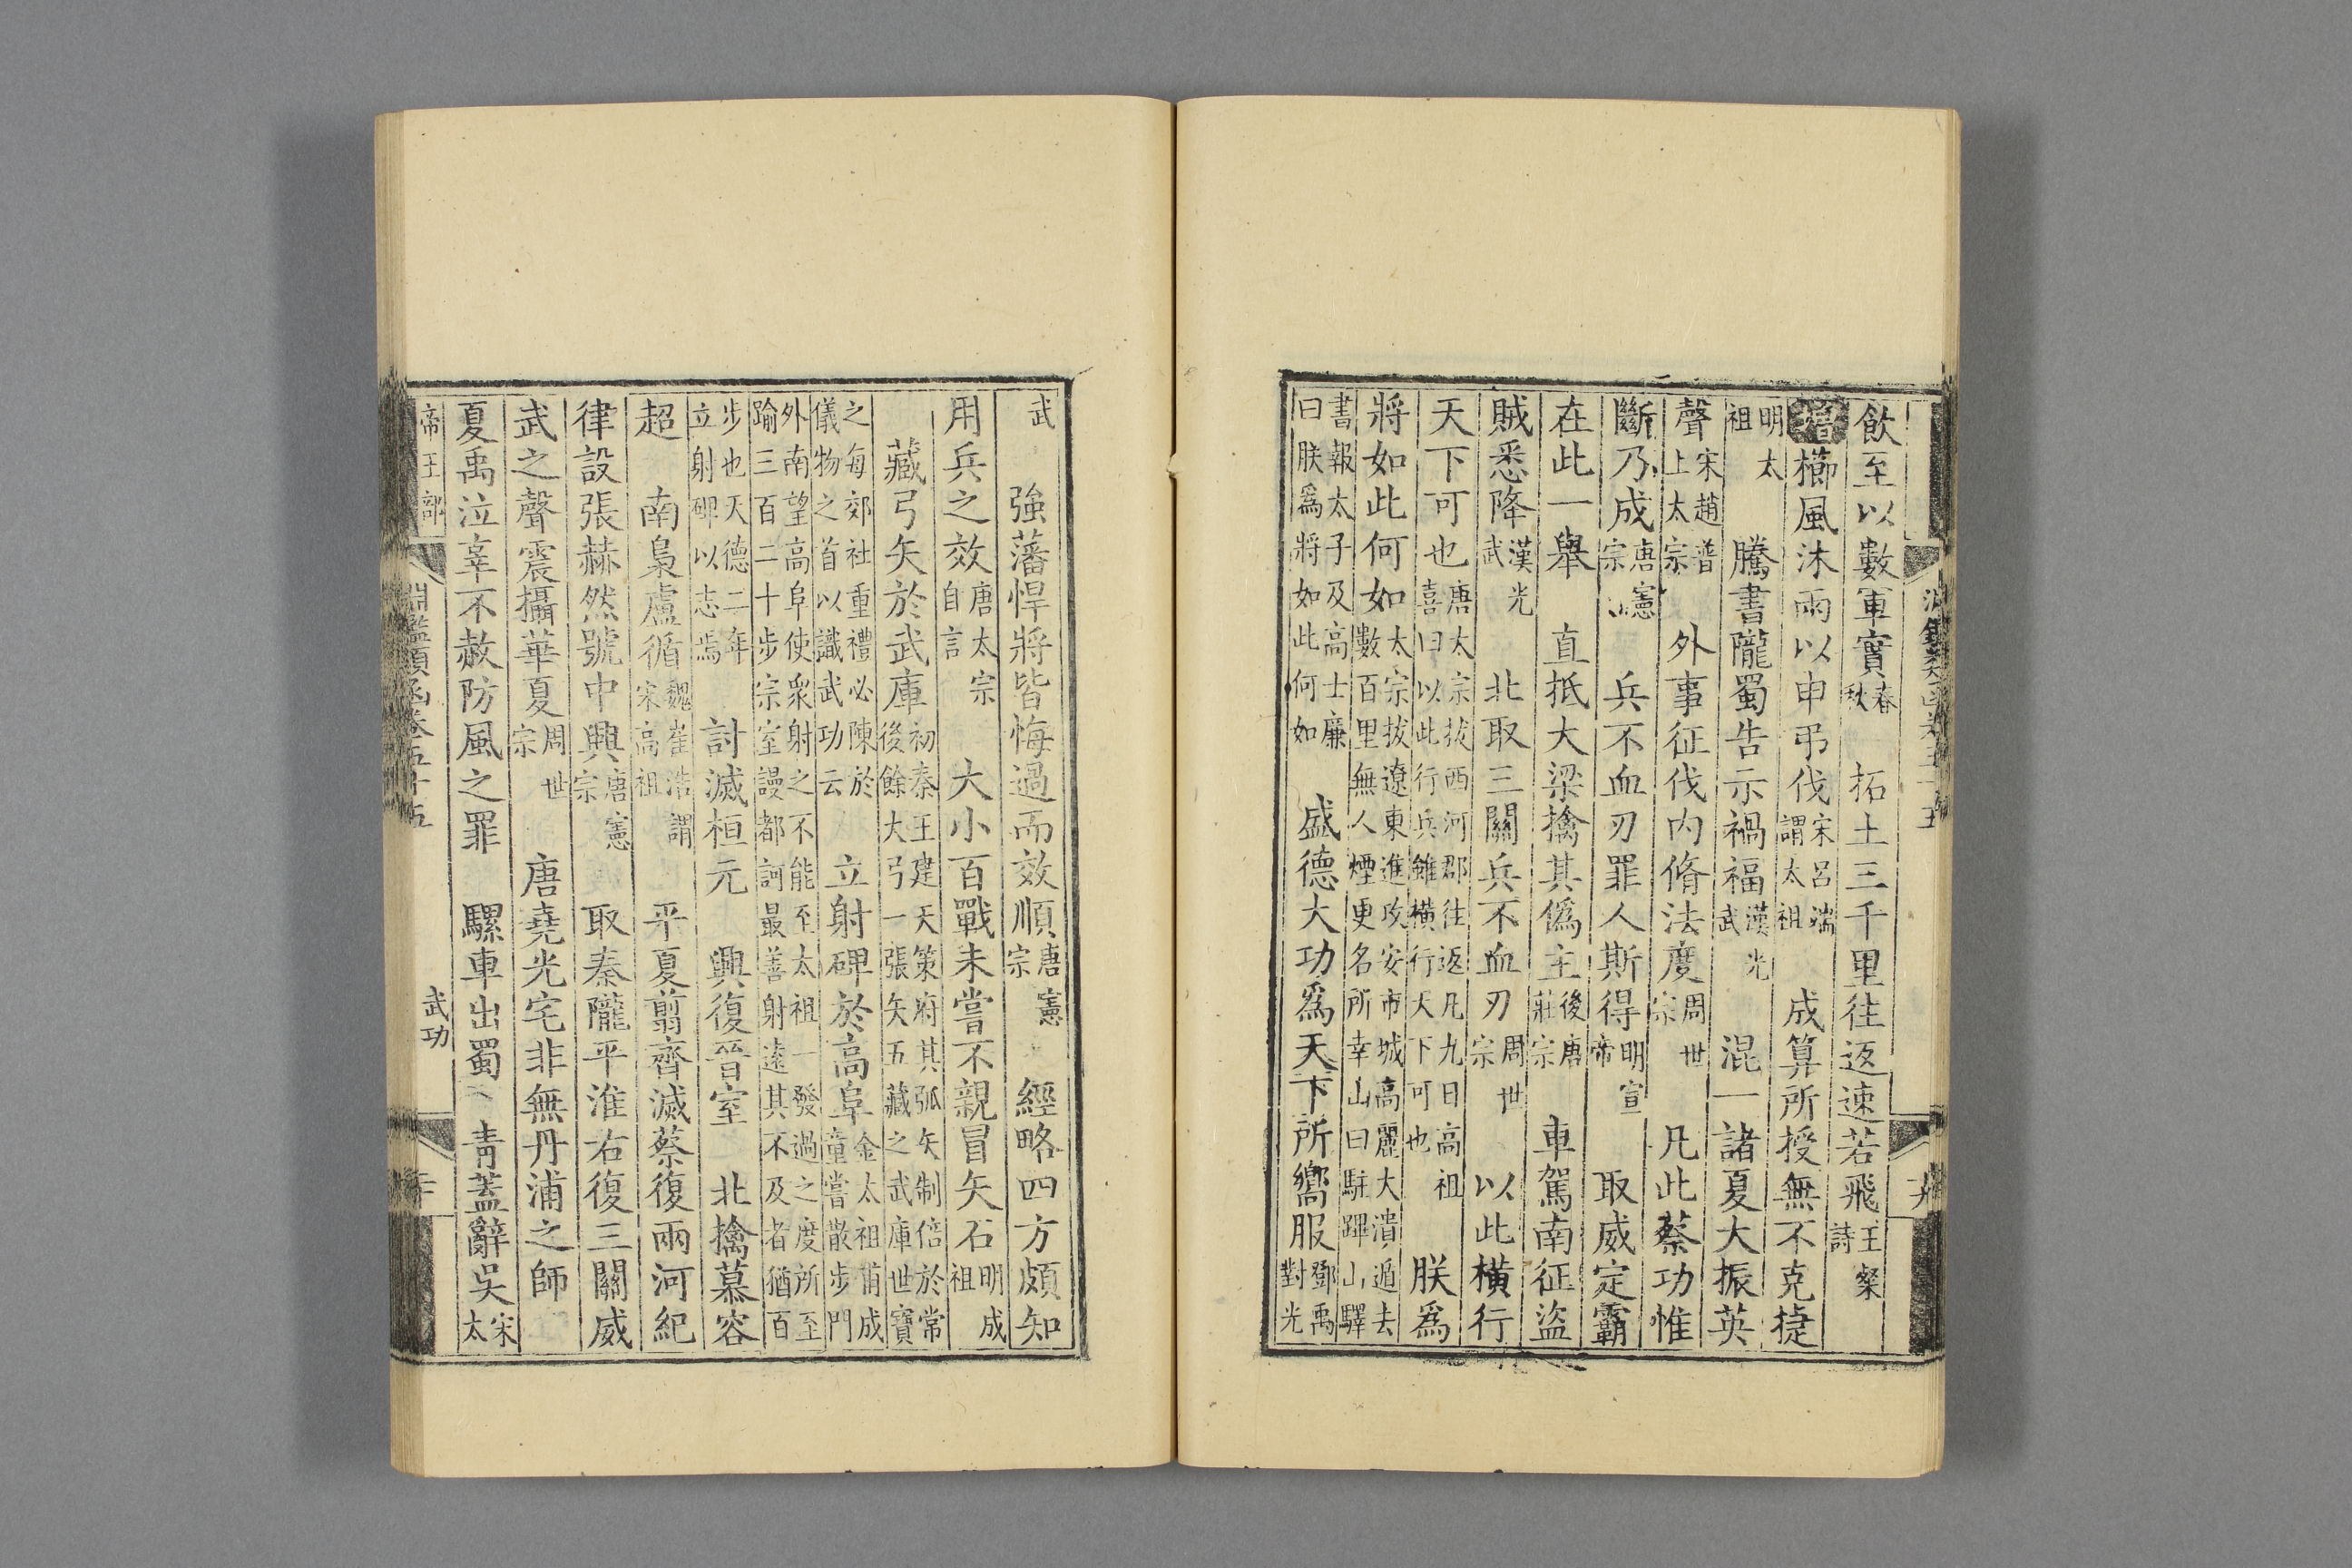 飲至以數軍實春秋 拓土三千里往返速若飛王粲詩
增櫛風沐雨以申弔伐宋呂端謂太祖 成算所授無不克捷
明太祖 騰書隴蜀告示禍福漢光武 混一諸夏大振英
聲宋趙普上太宗 外事征伐內脩法度周世宗 凡此蔡功惟
斷乃成唐憲宗 兵不血刃罪人斯得明宣帝 取威定霸
在此一舉 直抵大梁擒其偽主後唐莊宗 車駕南征盜
賊悉降漢光武 北取三關兵不血刃周世宗 以此橫行
天下可也唐太宗拔西河郡往返凡九日高祖喜曰以此行兵雖橫行天下可也 朕爲
將如此何如太宗拔遼東進攻安市城高麗大潰遁去數百里無人煙更名所幸山曰駐蹕山驛
書報太子及高士廉曰朕爲將如此何如 盛德大功爲天下所嚮服鄧禹對光
武 強藩悍將皆悔過而效順唐憲宗 經略四方頗知
用兵之效唐太宗自言 大小百戰未嘗不親冒矢石明成祖
藏弓矢於武庫初秦王建天策府其弧矢制倍於常後餘大弓一張矢五藏之武庫世寶
之每郊社重禮必陳於儀物之首以識武功云 立射碑於高阜金太祖甫成童嘗散步門
外南望高阜使衆射之不能至太祖一發過之度所至踰三百二十步宗室謾都訶最善射遠其不及者猶百
步也天德二年立射碑以志焉 討滅桓元 興復晉室 北擒慕容
超 南梟盧循魏崔浩謂宋高祖 平夏翦齊滅蔡復兩河紀
律設張赫然號中興唐憲宗 取秦隴平淮右復三關威
武之聲震攝華夏周世宗 唐堯光宅非無丹浦之師
夏禹泣辜不赦防風之罪 騾車出蜀 青蓋辭吳宋太
帝王部 淵鑑類函卷五十五 武功